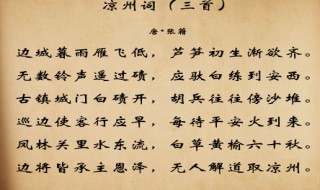 凉州词（三首）
唐·张籍
边城暮雨雁飞低，芦笋初生渐欲齐。
无数铃声遥过碛，应驮白练到安西。
古镇城门白碛开，胡兵往往傍沙堆。
巡边使客行应早，每待平安火到来。
凤林关里水东流，白草黄榆六十秋。
边将皆承主恩泽，无人解道取凉州。